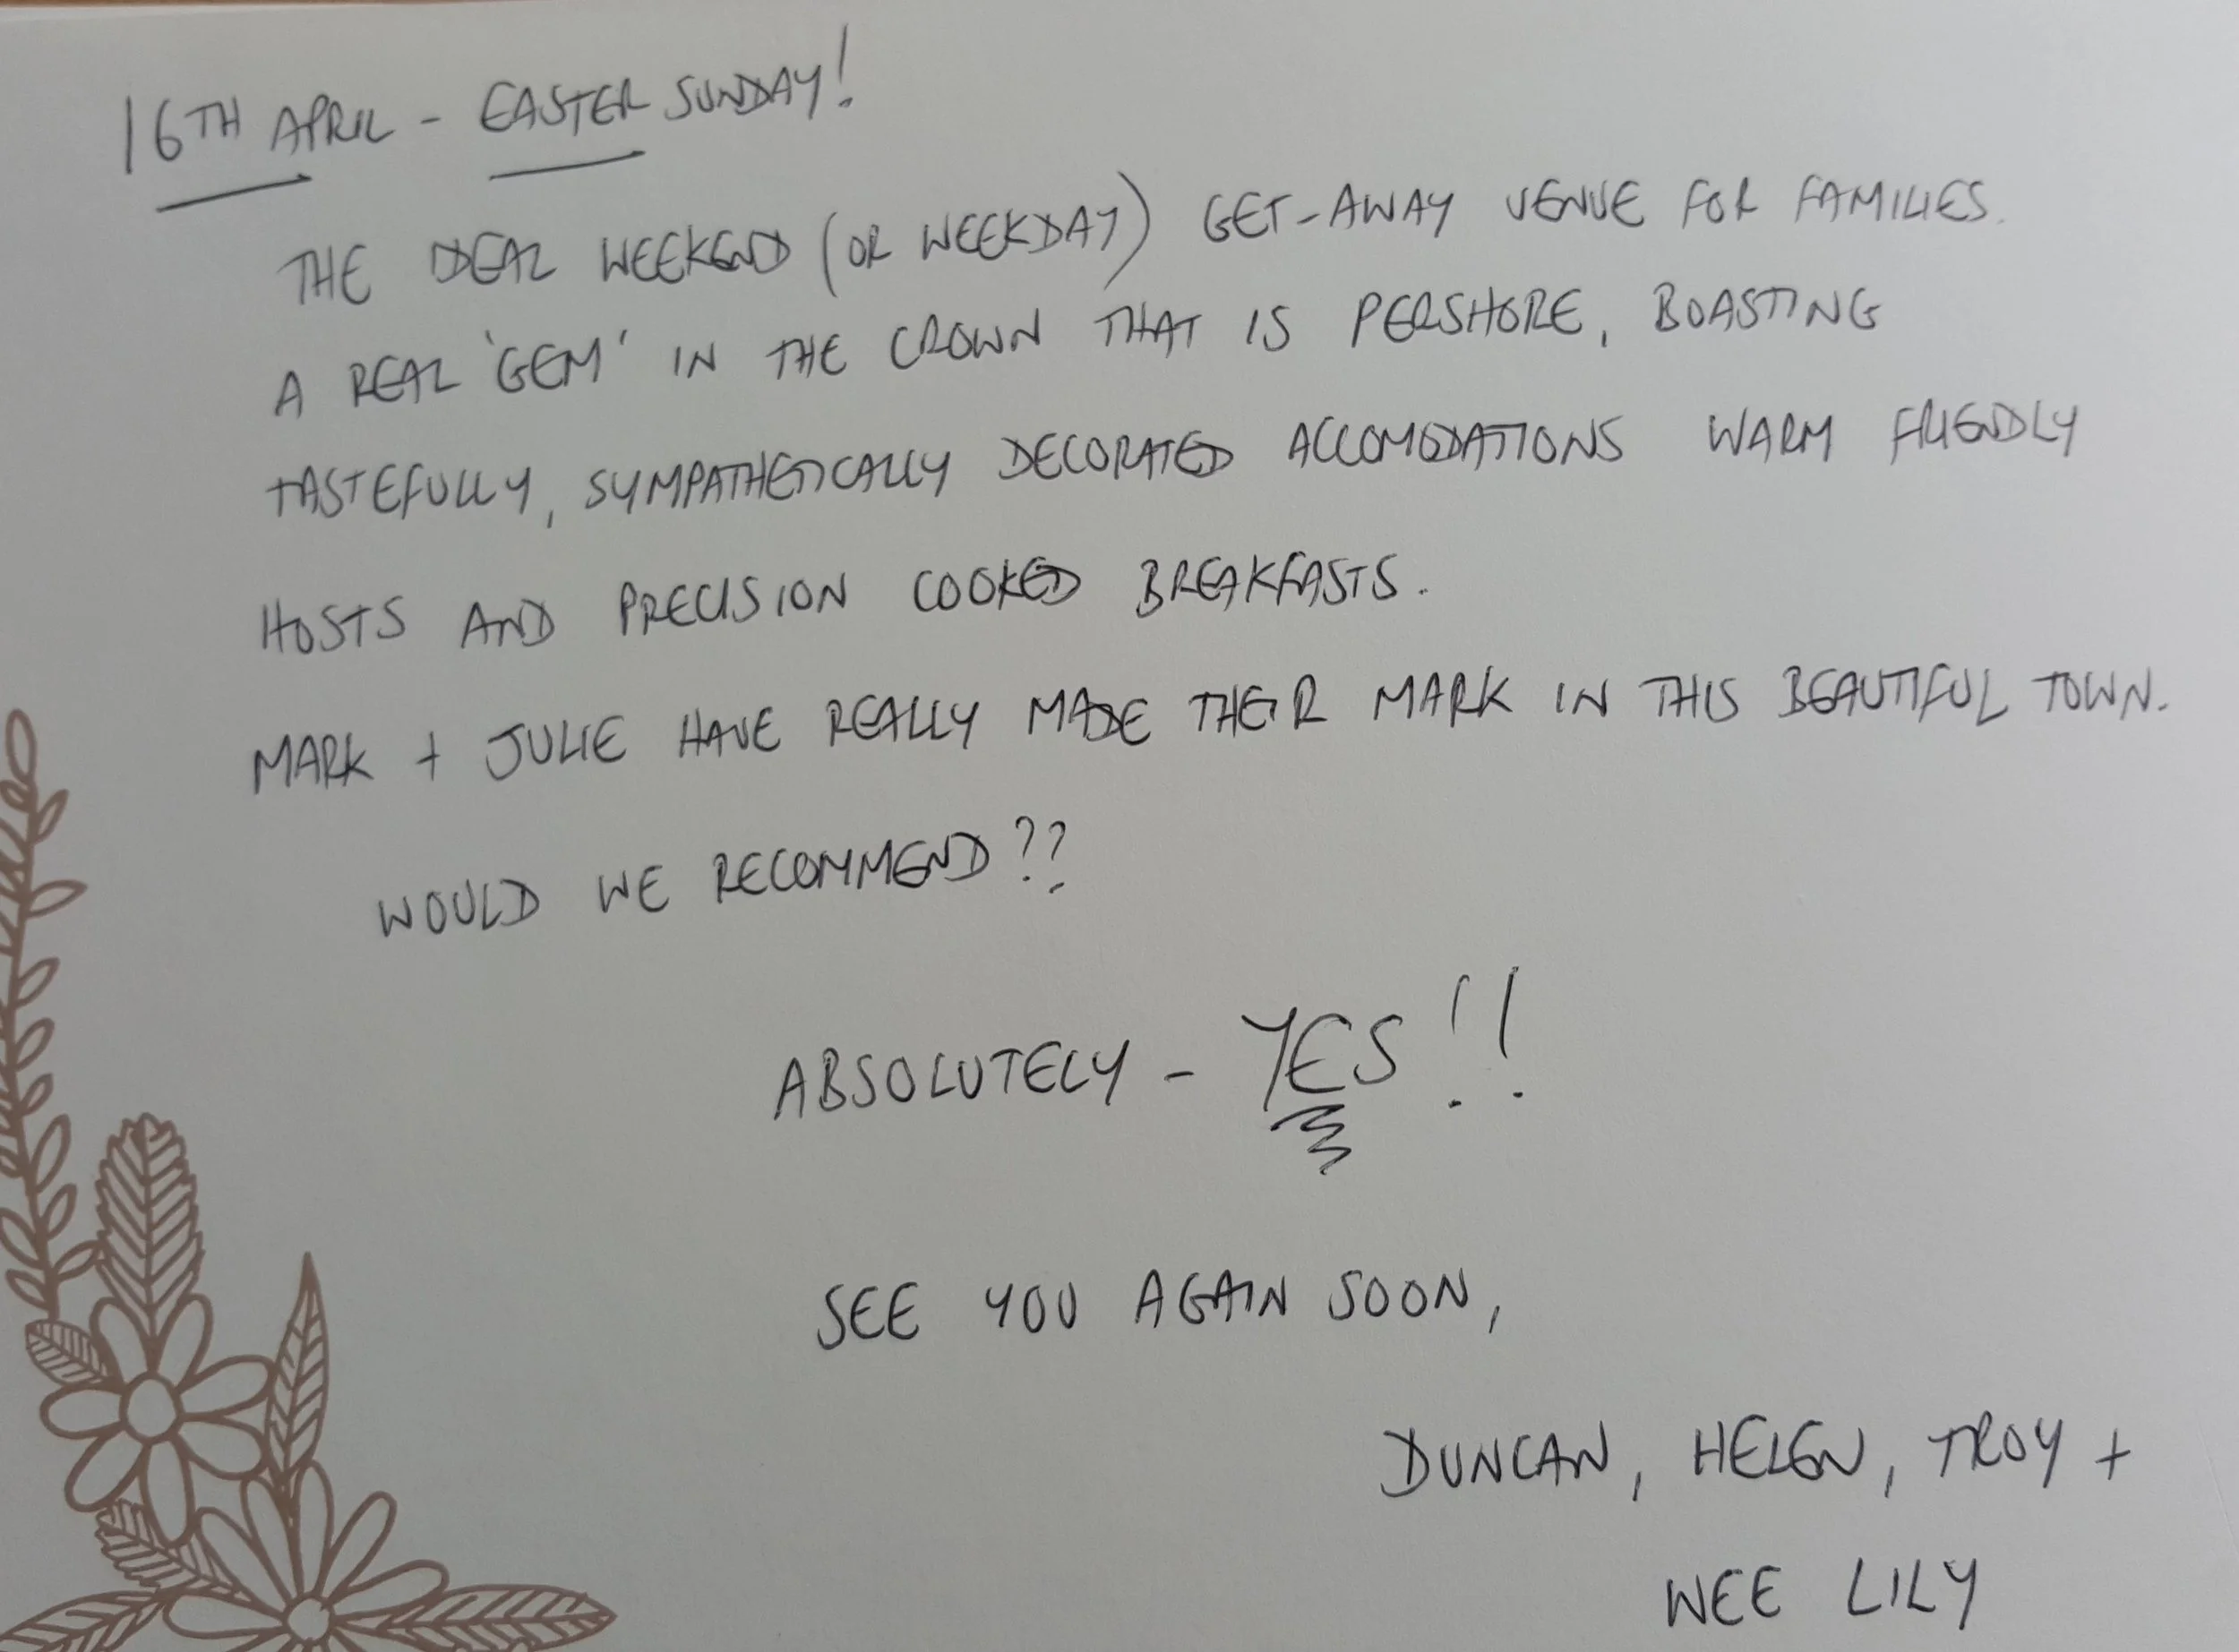 16TH APRIL - EASTER SUNDAY!
THE IDEAL WEEKEND (OR WEEKDAY) GET-AWAY VENUE FOR FAMILIES.
A REAL 'GEM' IN THE CROWN THAT IS PERSHORE, BOASTING
TASTEFULLY, SYMPATHETICALLY DECORATED ACCOMODATIONS WARM FRIENDLY
HOSTS AND PRECISION COOKED BREAKFASTS.
MARK + JULIE HAVE REALLY MADE THEIR MARK IN THIS BEAUTIFUL TOWN.
WOULD WE RECOMMEND??
ABSOLUTELY - YES!!
SEE YOU AGAIN SOON,
DUNCAN, HELEN, TROY +
WEE LILY